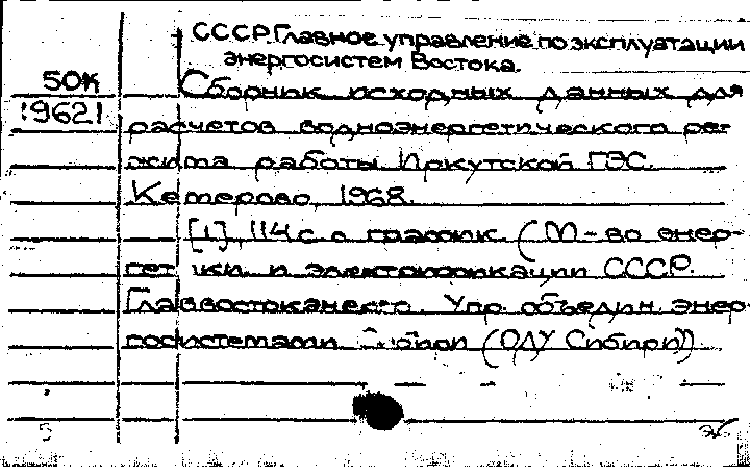 СССР. Главное управление по эксплуатации
энергосистем Востока.
50К
19621
Сборник исходных данных для
расчетов водноэнергетического ре-
жима работы Иркутской ГЭС.
Кемерово, 1968.
[1], 114 с. с график. (М-во энер-
гетики и электрификации СССР.
Главвостокэнерго. Упр. объедин. энер-
госистемами Сибири (ОДУ Сибири)).
5